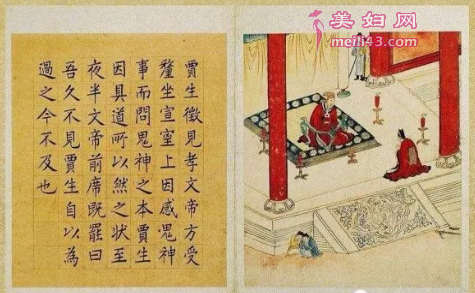 賈生徵見孝文帝方受
釐坐宣室上因感鬼神
事而問鬼神之本賈生
因具道所以然之狀至
夜半文帝前席既罷曰
吾久不見賈生自以為
過之今不及也
美妇网
meili43.com